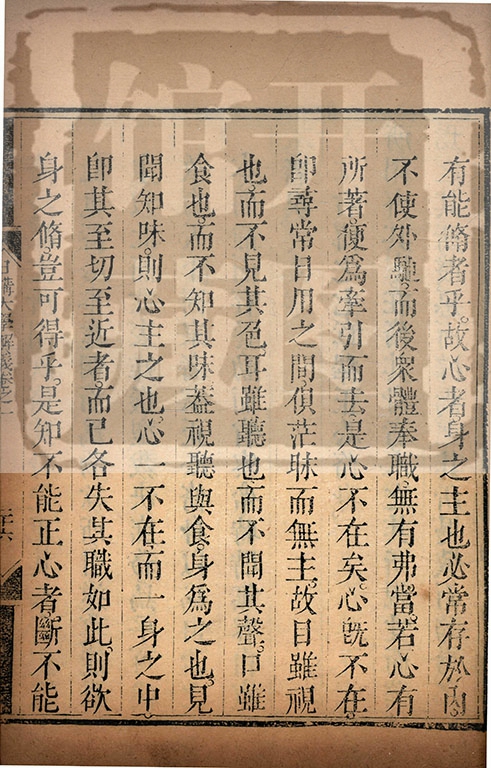 有能脩者乎。故心者身之主也必常存於內
不使外馳。而後衆體奉職無有弗當。若心有
所著。便爲牽引而去。是心不在矣。心旣不在。
卽尋常日用之間。俱茫昧而無主。故目雖視
也。而不見其色。耳雖聽也而不聞其聲。口雖
食也。而不知其味。葢視聽與食。身爲之也。見
聞知味。則心主之也。心一不在。而一身之中。
卽其至切至近者。而已各失其職如此。則欲
身之脩。豈可得乎。是知不能正心者。斷不能
日講大學解義卷之一